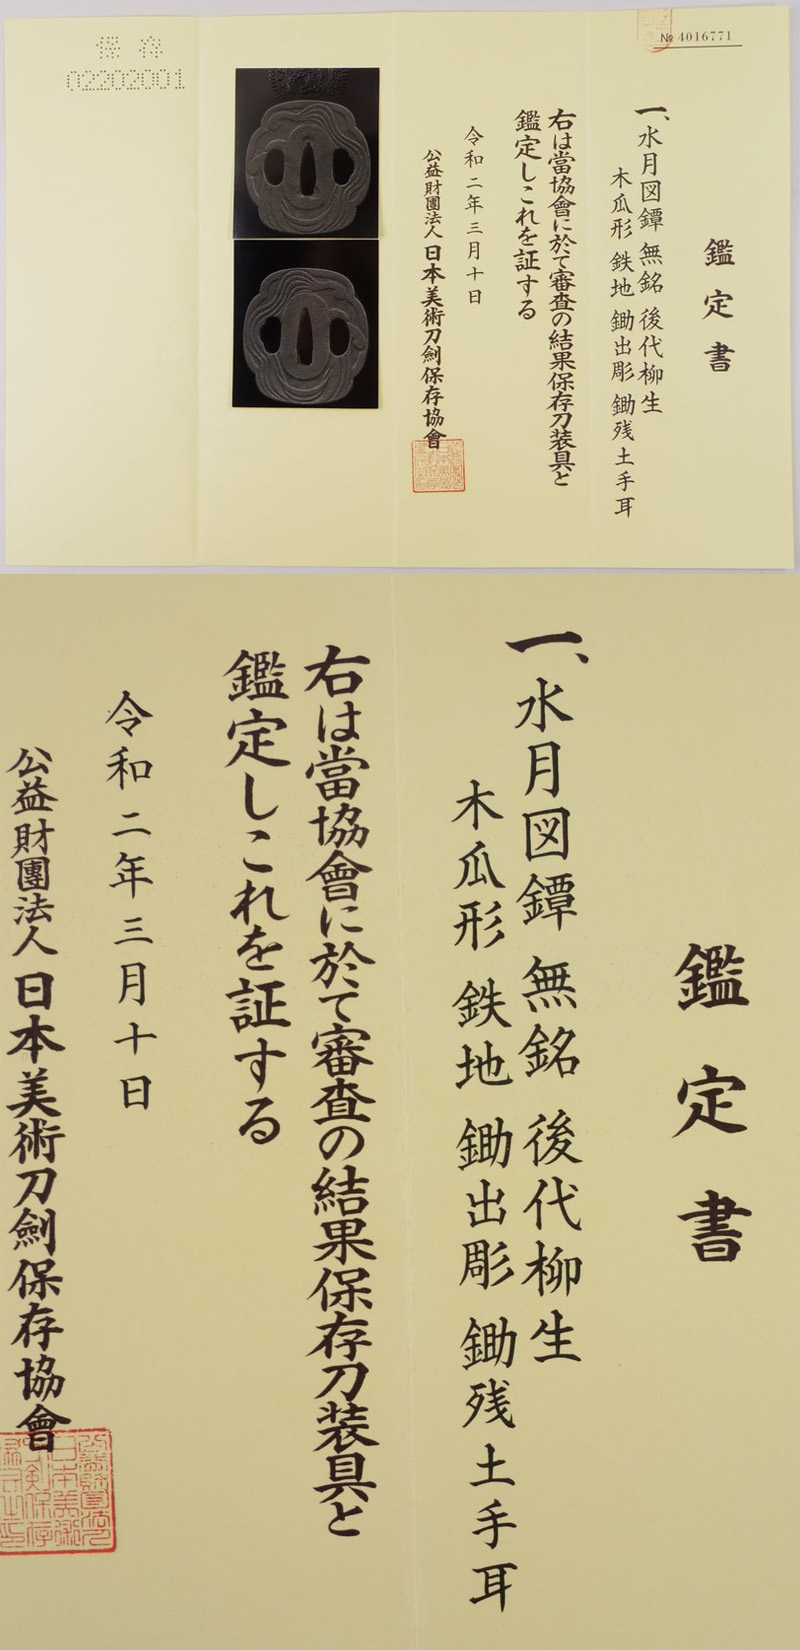 № 4016771
鑑定書
一、水月図鐔 無銘 後代柳生
木瓜形 鉄地 鋤出彫 鋤残土手耳
右は當協會に於て審査の結果保存刀装具と
鑑定しこれを証する
令和二年三月十日
公益財團法人日本美術刀劍保存協會
保存
02202001
鑑定書
一、水月図鐔 無銘 後代柳生
木瓜形 鉄地 鋤出彫 鋤残土手耳
右は當協會に於て審査の結果保存刀装具と
鑑定しこれを証する
令和二年三月十日
公益財團法人日本美術刀劍保存協會